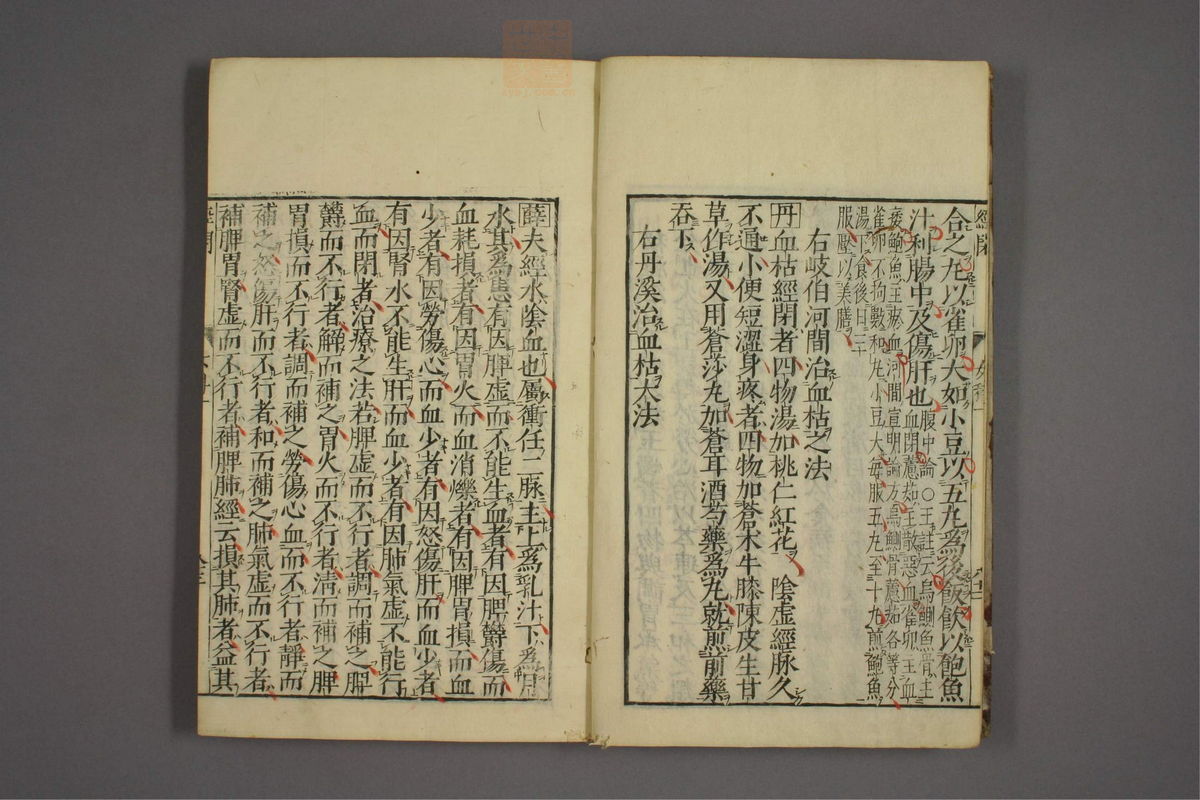 合之丸以雀卵大如小豆以五丸爲後飯飲以鮑魚
汁利腸中及傷肝也腹中論○王註云烏鰂魚骨主
血閉藘茹主散惡血雀卵主血
痿鮑魚主瘀血河間宣明論方烏鰂骨藘茹各等分
雀卵不拘數和丸小豆大每服五丸至十丸煎鮑魚
湯下食後日三
服壓以美膳
右岐伯河間治血枯之法
丹血枯經閉者四物湯加桃仁紅花 陰虛經脉久
不通小便短澀身疼者四物加蒼朮牛膝陳皮生甘
草作湯又用蒼莎丸加蒼耳酒芍藥爲丸就煎前藥
吞下
右丹溪治血枯大法
薛夫經水陰血也屬衝任二脉主上爲乳汁下爲月
水其爲患有因脾虛而不能生血者有因脾鬱傷而
血耗損者有因胃火而血消爍者有因脾胃損而血
少者有因勞傷心而血少者有因怒傷肝而血少者
有因腎水不能生肝而血少者有因肺氣虛不能行
血而閉者治療之法若脾虛而不行者調而補之脾
鬱而不行者解而補之胃火而不行者清而補之脾
胃損而不行者調而補之勞傷心血而不行者靜而
補之怒傷肝而不行者和而補之肺氣虛而不行者
補脾胃腎虛而不行者補脾肺經云損其肺者益其